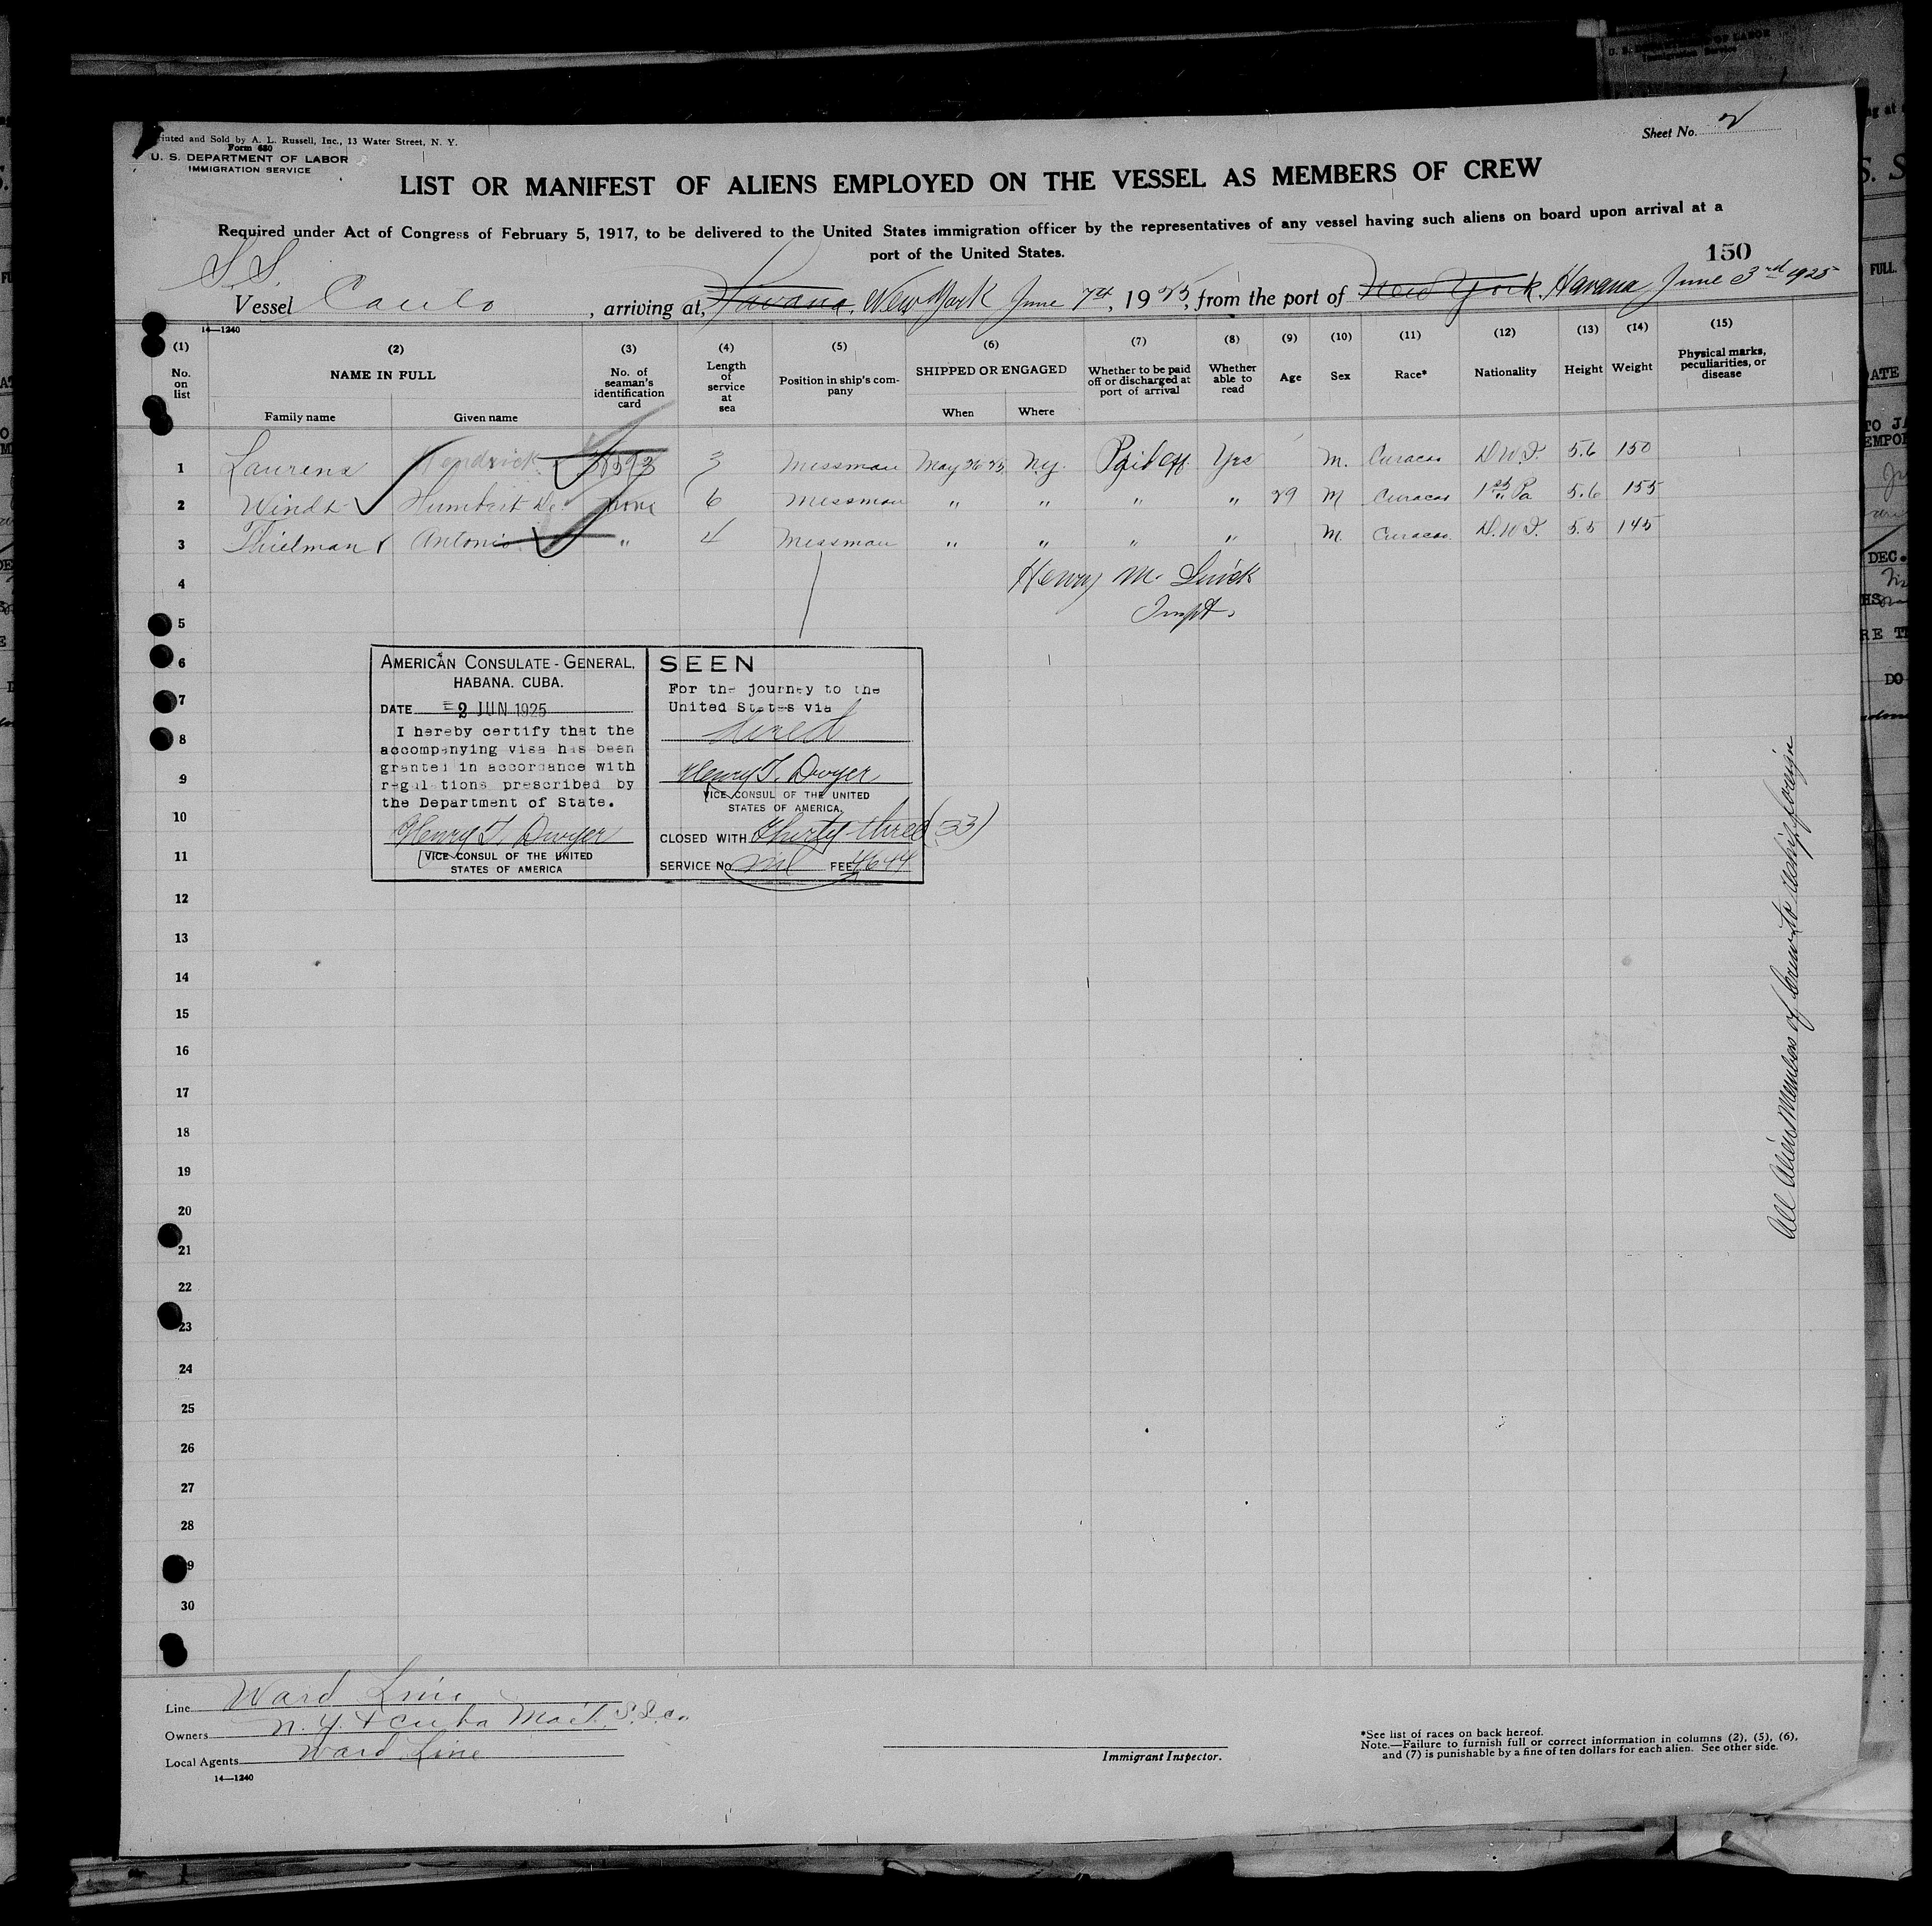 Printed and Sold by A. L. Russell, Inc., 13 Water Street, N. Y.
Form 680
U. S. DEPARTMENT OF LABOR
IMMIGRATION SERVICE
Sheet No. 2
LIST OR MANIFEST OF ALIENS EMPLOYED ON THE VESSEL AS MEMBERS OF CREW
Required under Act of Congress of February 5, 1917, to be delivered to the United States immigration officer by the representatives of any vessel having such aliens on board upon arrival at a
port of the United States.
150
S.S.
Vessel Cauto, arriving at, Havana, New York June 7th, 1925, from the port of New York Havana June 3rd 1925
14—1240
(1) (2) (3) (4) (5) (6) (7) (8) (9) (10) (11) (12) (13) (14) (15)
No. on list NAME IN FULL No. of seaman's identification card Length of service at sea Position in ship's company SHIPPED OR ENGAGED Whether to be paid off or discharged at port of arrival Whether able to read Age Sex Race* Nationality Height Weight Physical marks, peculiarities, or disease
Family name Given name When Where
1 Laurens Hendrick 3 Messman May 26 25 N.Y. Paid off Yes M. Curacao D.W.I. 5.6 150
2 Windt Humbert De none 6 Messman " " " " 29 M Curacao 5.6 155
3 Thielman Antonio " 4 Messman " " " " M. Curacao D.W.I. 5.5 145
4 Henry M.
5 Inspt.
6
7
8
9
10
11
12
13
14
15
16
17
18
19
20
21
22
23
24
25
26
27
28
29
30
AMERICAN CONSULATE-GENERAL,
HABANA. CUBA.
DATE 2 JUN 1925
I hereby certify that the
accompanying visa has been
granted in accordance with
regulations prescribed by
the Department of State.
Henry T. Dwyer
VICE CONSUL OF THE UNITED
STATES OF AMERICA
SEEN
For the journey to the
United States via
direct
Henry T. Dwyer
VICE CONSUL OF THE UNITED
STATES OF AMERICA.
CLOSED WITH Thirty three (33)
SERVICE No. FEE
All Alien Members of Crew to reship foreign
Line Ward Line
Owners N.Y. & Cuba Mail S.S. Co.
Local Agents Ward Line
14—1240
Immigrant Inspector.
*See list of races on back hereof.
Note.—Failure to furnish full or correct information in columns (2), (5), (6),
and (7) is punishable by a fine of ten dollars for each alien. See other side.